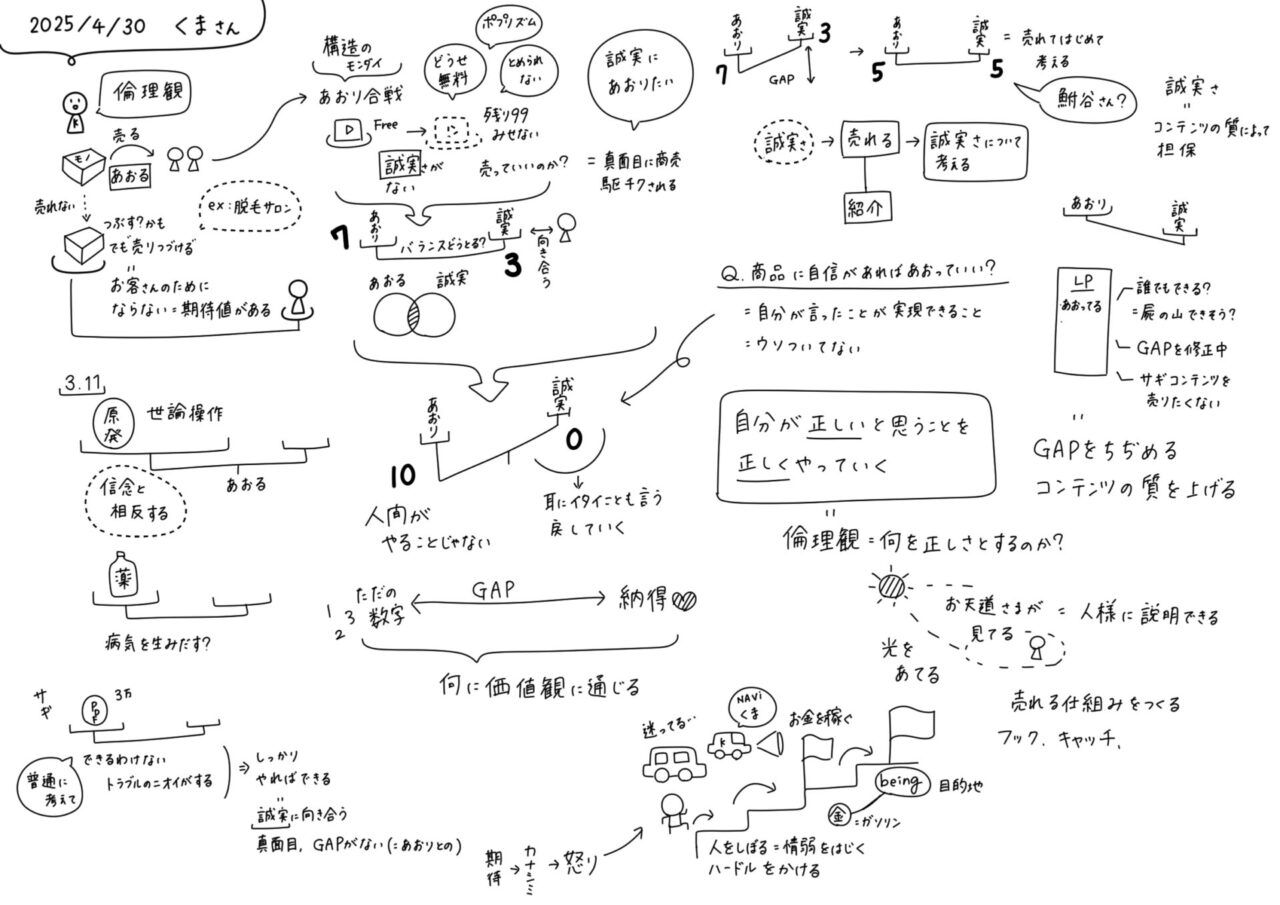 2025/4/30 くまさん
倫理観
K
売る
モノ
あおる
売れない
ex:脱毛サロン
つぶす?かも
でも売りつづける
=
お客さんのために
ならない=期待値がある
3.11
原発
世論操作
あおる
信念と
相反する
薬
病気を生みだす?
サギ
PDF
3万
普通に
考えて
できるわけない
トラブルのニオイがする
⇒ しっかり
やればできる
=
誠実に向き合う
真面目、GAPがない(=あおりとの)
構造の
モンダイ
あおり合戦
ポプリズム
どうせ
無料
とめられ
ない
Free
残り99
みせない
誠実さが
ない
売っていいのか?
誠実に
あおりたい
= 真面目に商売
駆チクされる
7
あおり
バランスどうとる?
誠実
3
向き合う
あおる 誠実
あおり
10
誠実
0
人間が
やることじゃない
耳にイタイことも言う
戻していく
1 2 3
ただの
数字
GAP
納得
何に価値観に通じる
期待→カナシミ→怒り
迷ってる…
NAVi
くま
K
お金を稼ぐ
being
目的地
金=ガソリン
人をしぼる=情弱をはじく
ハードルをかける
あおり
7
誠実
3
GAP
→
あおり
5
誠実
5
= 売れてはじめて
考える
鮒谷さん?
誠実さ
=
コンテンツの質によって
担保
誠実さ→売れる→誠実さについて
考える
紹介
Q.商品に自信があればあおっていい?
=自分が言ったことが実現できること
=ウソついてない
あおり
誠実
LP
あおってる
誰でもできる?
=屍の山できそう?
GAPを修正中
サギコンテンツを
売りたくない
=
GAPをちぢめる
コンテンツの質を上げる
自分が正しいと思うことを
正しくやっていく
=
倫理観=何を正しさとするのか?
お天道さまが
見てる
= 人様に説明できる
光を
あてる
売れる仕組みをつくる
フック、キャッチ、